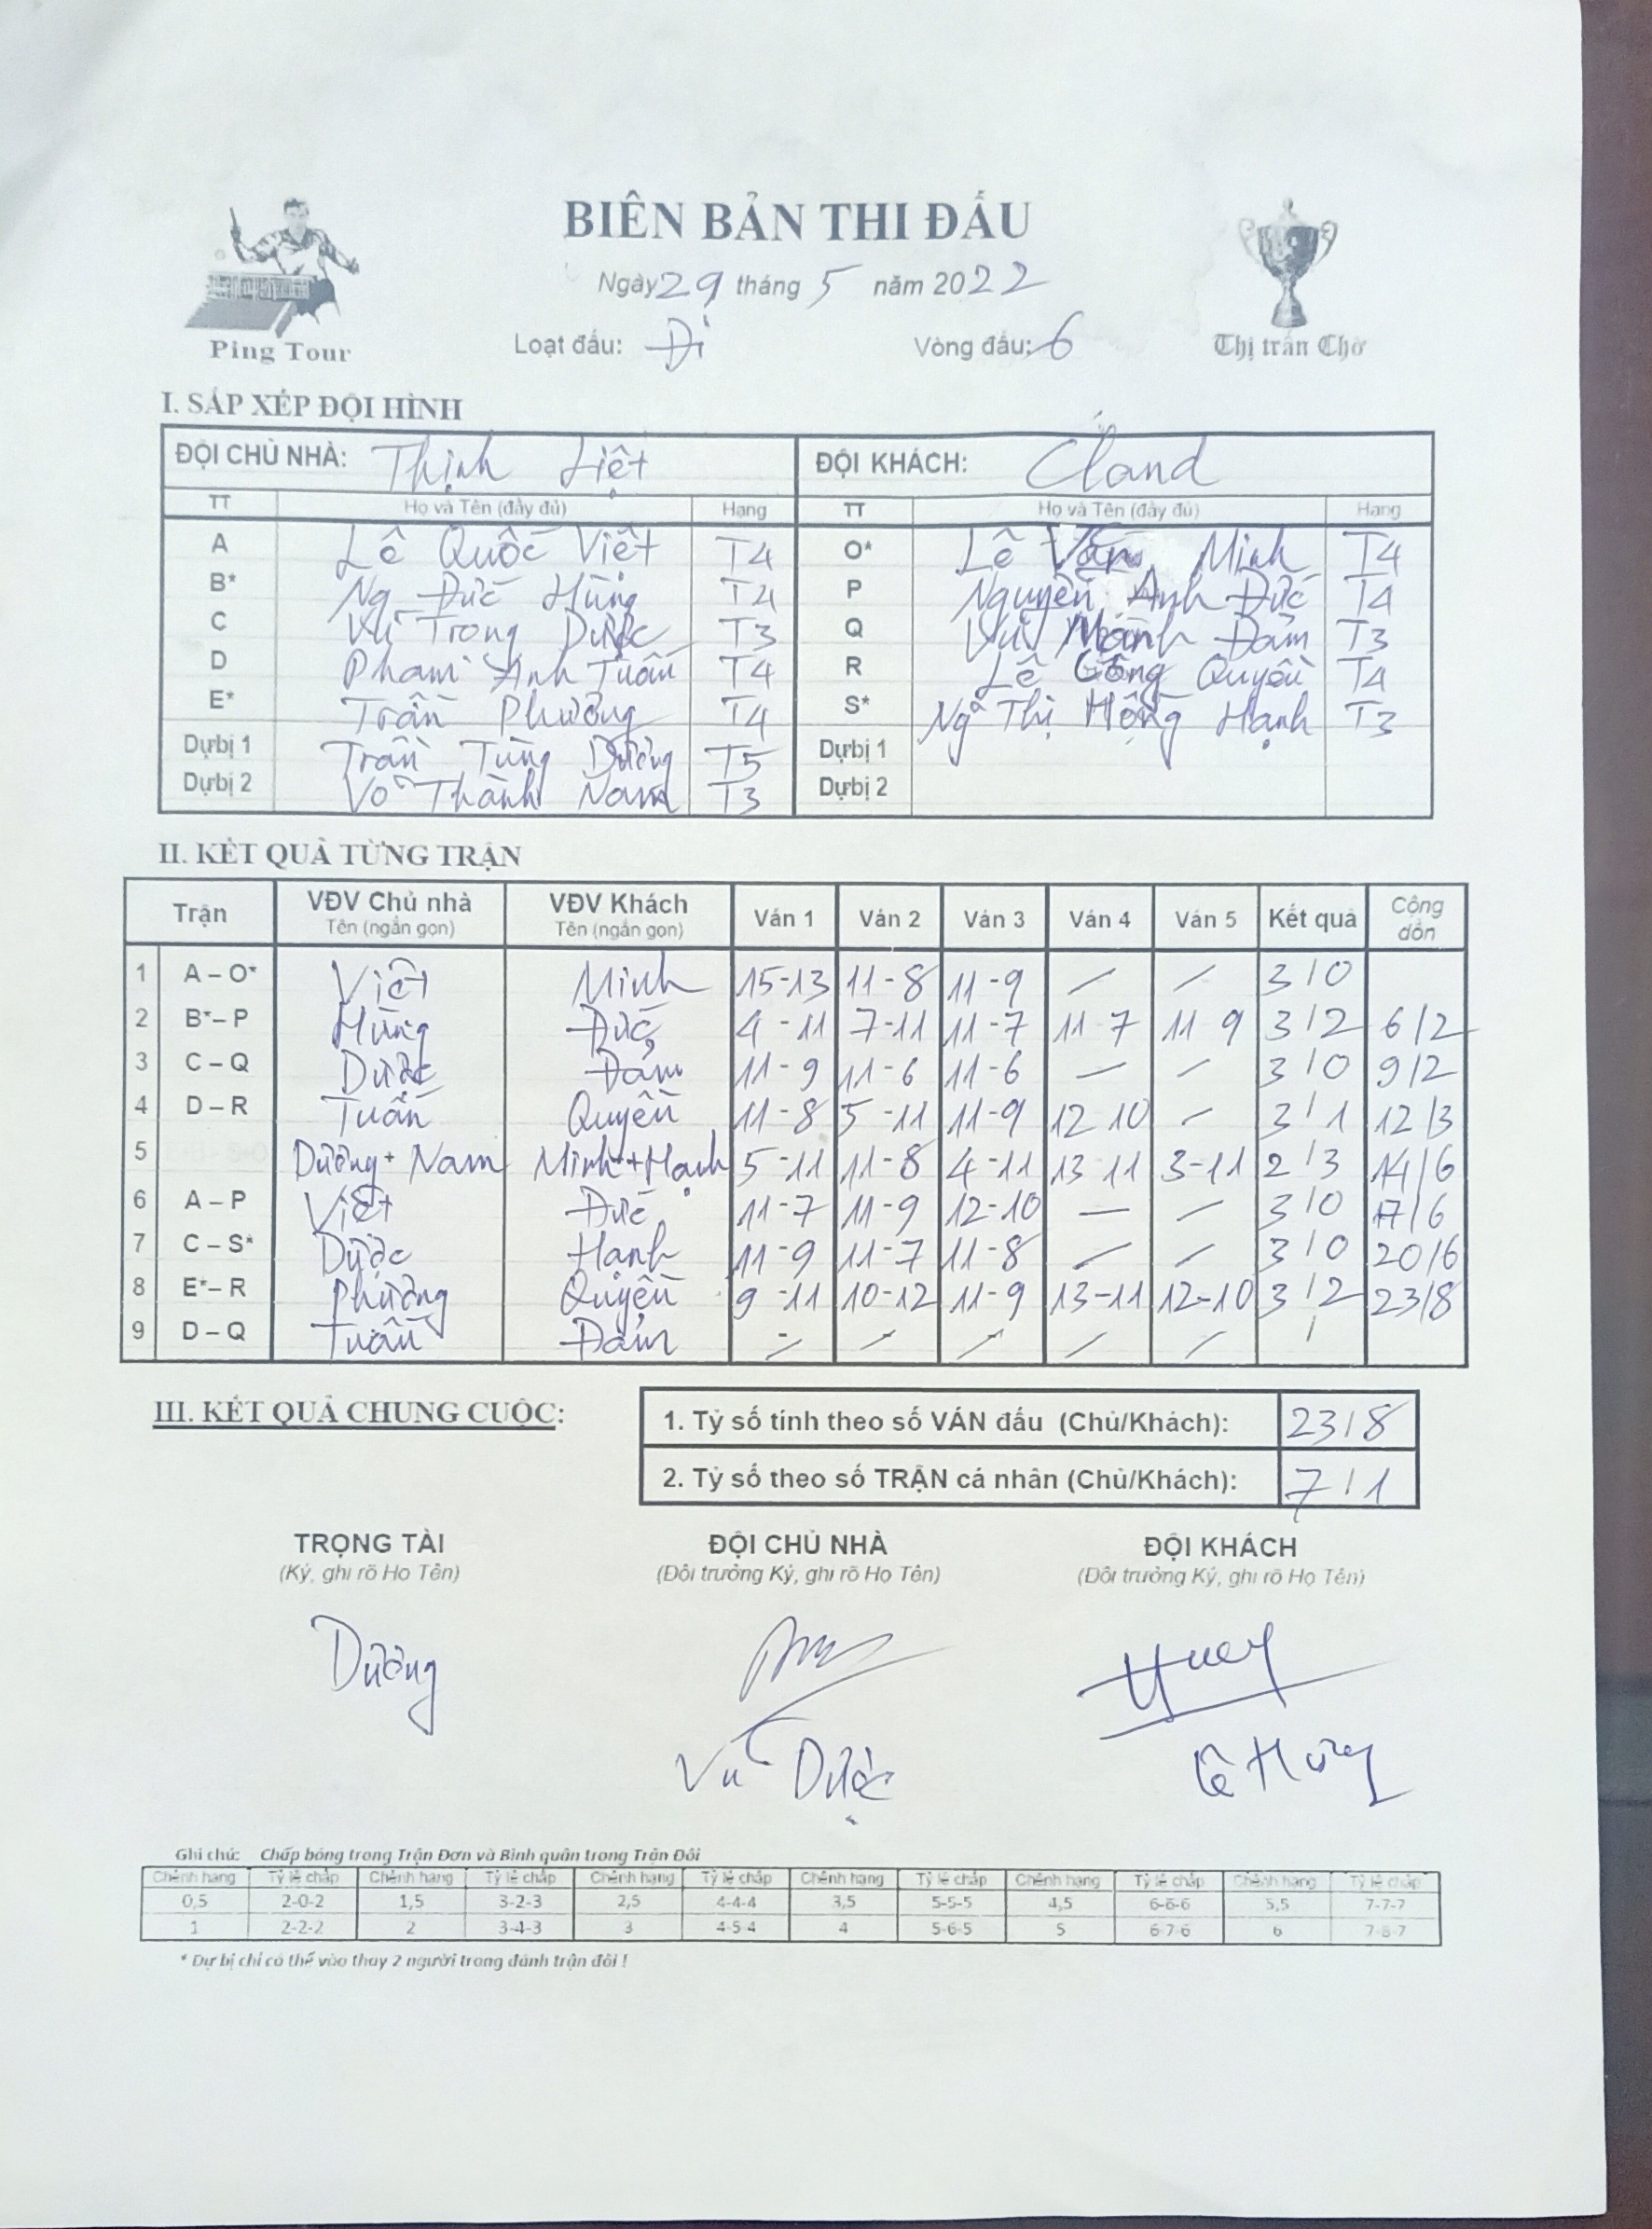 BIÊN BẢN THI ĐẤU
Ngày 29 tháng 5 năm 2022
Ping Tour
Loạt đấu: Đi Vòng đấu: 6
Thị trấn Chờ
I. SẮP XẾP ĐỘI HÌNH
ĐỘI CHỦ NHÀ: Thịnh Liệt ĐỘI KHÁCH: Cland
TT Họ và Tên (đầy đủ) Hạng TT Họ và Tên (đầy đủ) Hạng
A Lê Quốc Việt T4 O* Lê Văn Minh T4
B* Ng Đức Hùng T4 P Nguyễn Anh Đức T4
C Vũ Trọng Dược T3 Q Vũ Mạnh Đảm T3
D Phạm Anh Tuấn T4 R Lê Công Quyền T4
E* Trần Phường T4 S* Ngô Thị Hồng Hạnh T3
Dự bị 1 Trần Tùng Dương T5 Dự bị 1
Dự bị 2 Võ Thành Nam T3 Dự bị 2
II. KẾT QUẢ TỪNG TRẬN
Trận VĐV Chủ nhà VĐV Khách Ván 1 Ván 2 Ván 3 Ván 4 Ván 5 Kết quả Cộng dồn
Tên (ngắn gọn) Tên (ngắn gọn)
1 A – O* Việt Minh 15-13 11-8 11-9 / / 3/0
2 B* – P Hùng Đức 4-11 7-11 11-7 11-7 11-9 3/2 6/2
3 C – Q Dược Đảm 11-9 11-6 11-6 — / 3/0 9/2
4 D – R Tuấn Quyền 11-8 5-11 11-9 12-10 / 3/1 12/3
5 Dương+ Nam Minh+Hạnh 5-11 11-8 4-11 13-11 3-11 2/3 14/6
6 A – P Việt Đức 11-7 11-9 12-10 — / 3/0 17/6
7 C – S* Dược Hạnh 11-9 11-7 11-8 / / 3/0 20/6
8 E* – R Phường Quyền 9-11 10-12 11-9 13-11 12-10 3/2 23/8
9 D – Q Tuấn Đảm / / / / / /
III. KẾT QUẢ CHUNG CUỘC:
1. Tỷ số tính theo số VÁN đấu (Chủ/Khách): 23/8
2. Tỷ số theo số TRẬN cá nhân (Chủ/Khách): 7/1
TRỌNG TÀI ĐỘI CHỦ NHÀ ĐỘI KHÁCH
(Ký, ghi rõ Họ Tên) (Đội trưởng Ký, ghi rõ Họ Tên) (Đội trưởng Ký, ghi rõ Họ Tên)
Dương
Vũ Dược Lê Hưng
Ghi chú: Chấp bóng trong Trận Đơn và Bình quân trong Trận Đôi
Chênh hạng Tỷ lệ chấp Chênh hạng Tỷ lệ chấp Chênh hạng Tỷ lệ chấp Chênh hạng Tỷ lệ chấp Chênh hạng Tỷ lệ chấp Chênh hạng Tỷ lệ chấp
0,5 2-0-2 1,5 3-2-3 2,5 4-4-4 3,5 5-5-5 4,5 6-6-6 5,5 7-7-7
1 2-2-2 2 3-4-3 3 4-5-4 4 5-6-5 5 6-7-6 6 7-8-7
* Dự bị chỉ có thể vào thay 2 người trong đánh trận đôi !